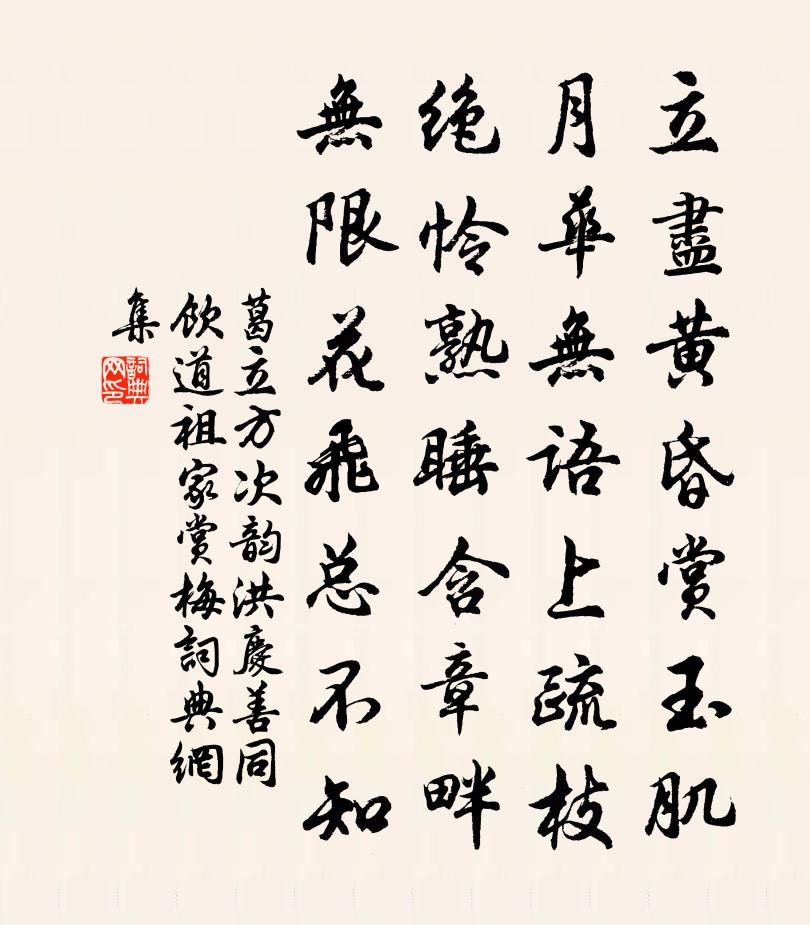 立盡黄昏賞玉肌
月華無語上疏枝
绝憐熟睡含章畔
無限花飛总不知
葛立方次韵洪慶善同
飲道祖家賞梅詞典網
集
詞典網印